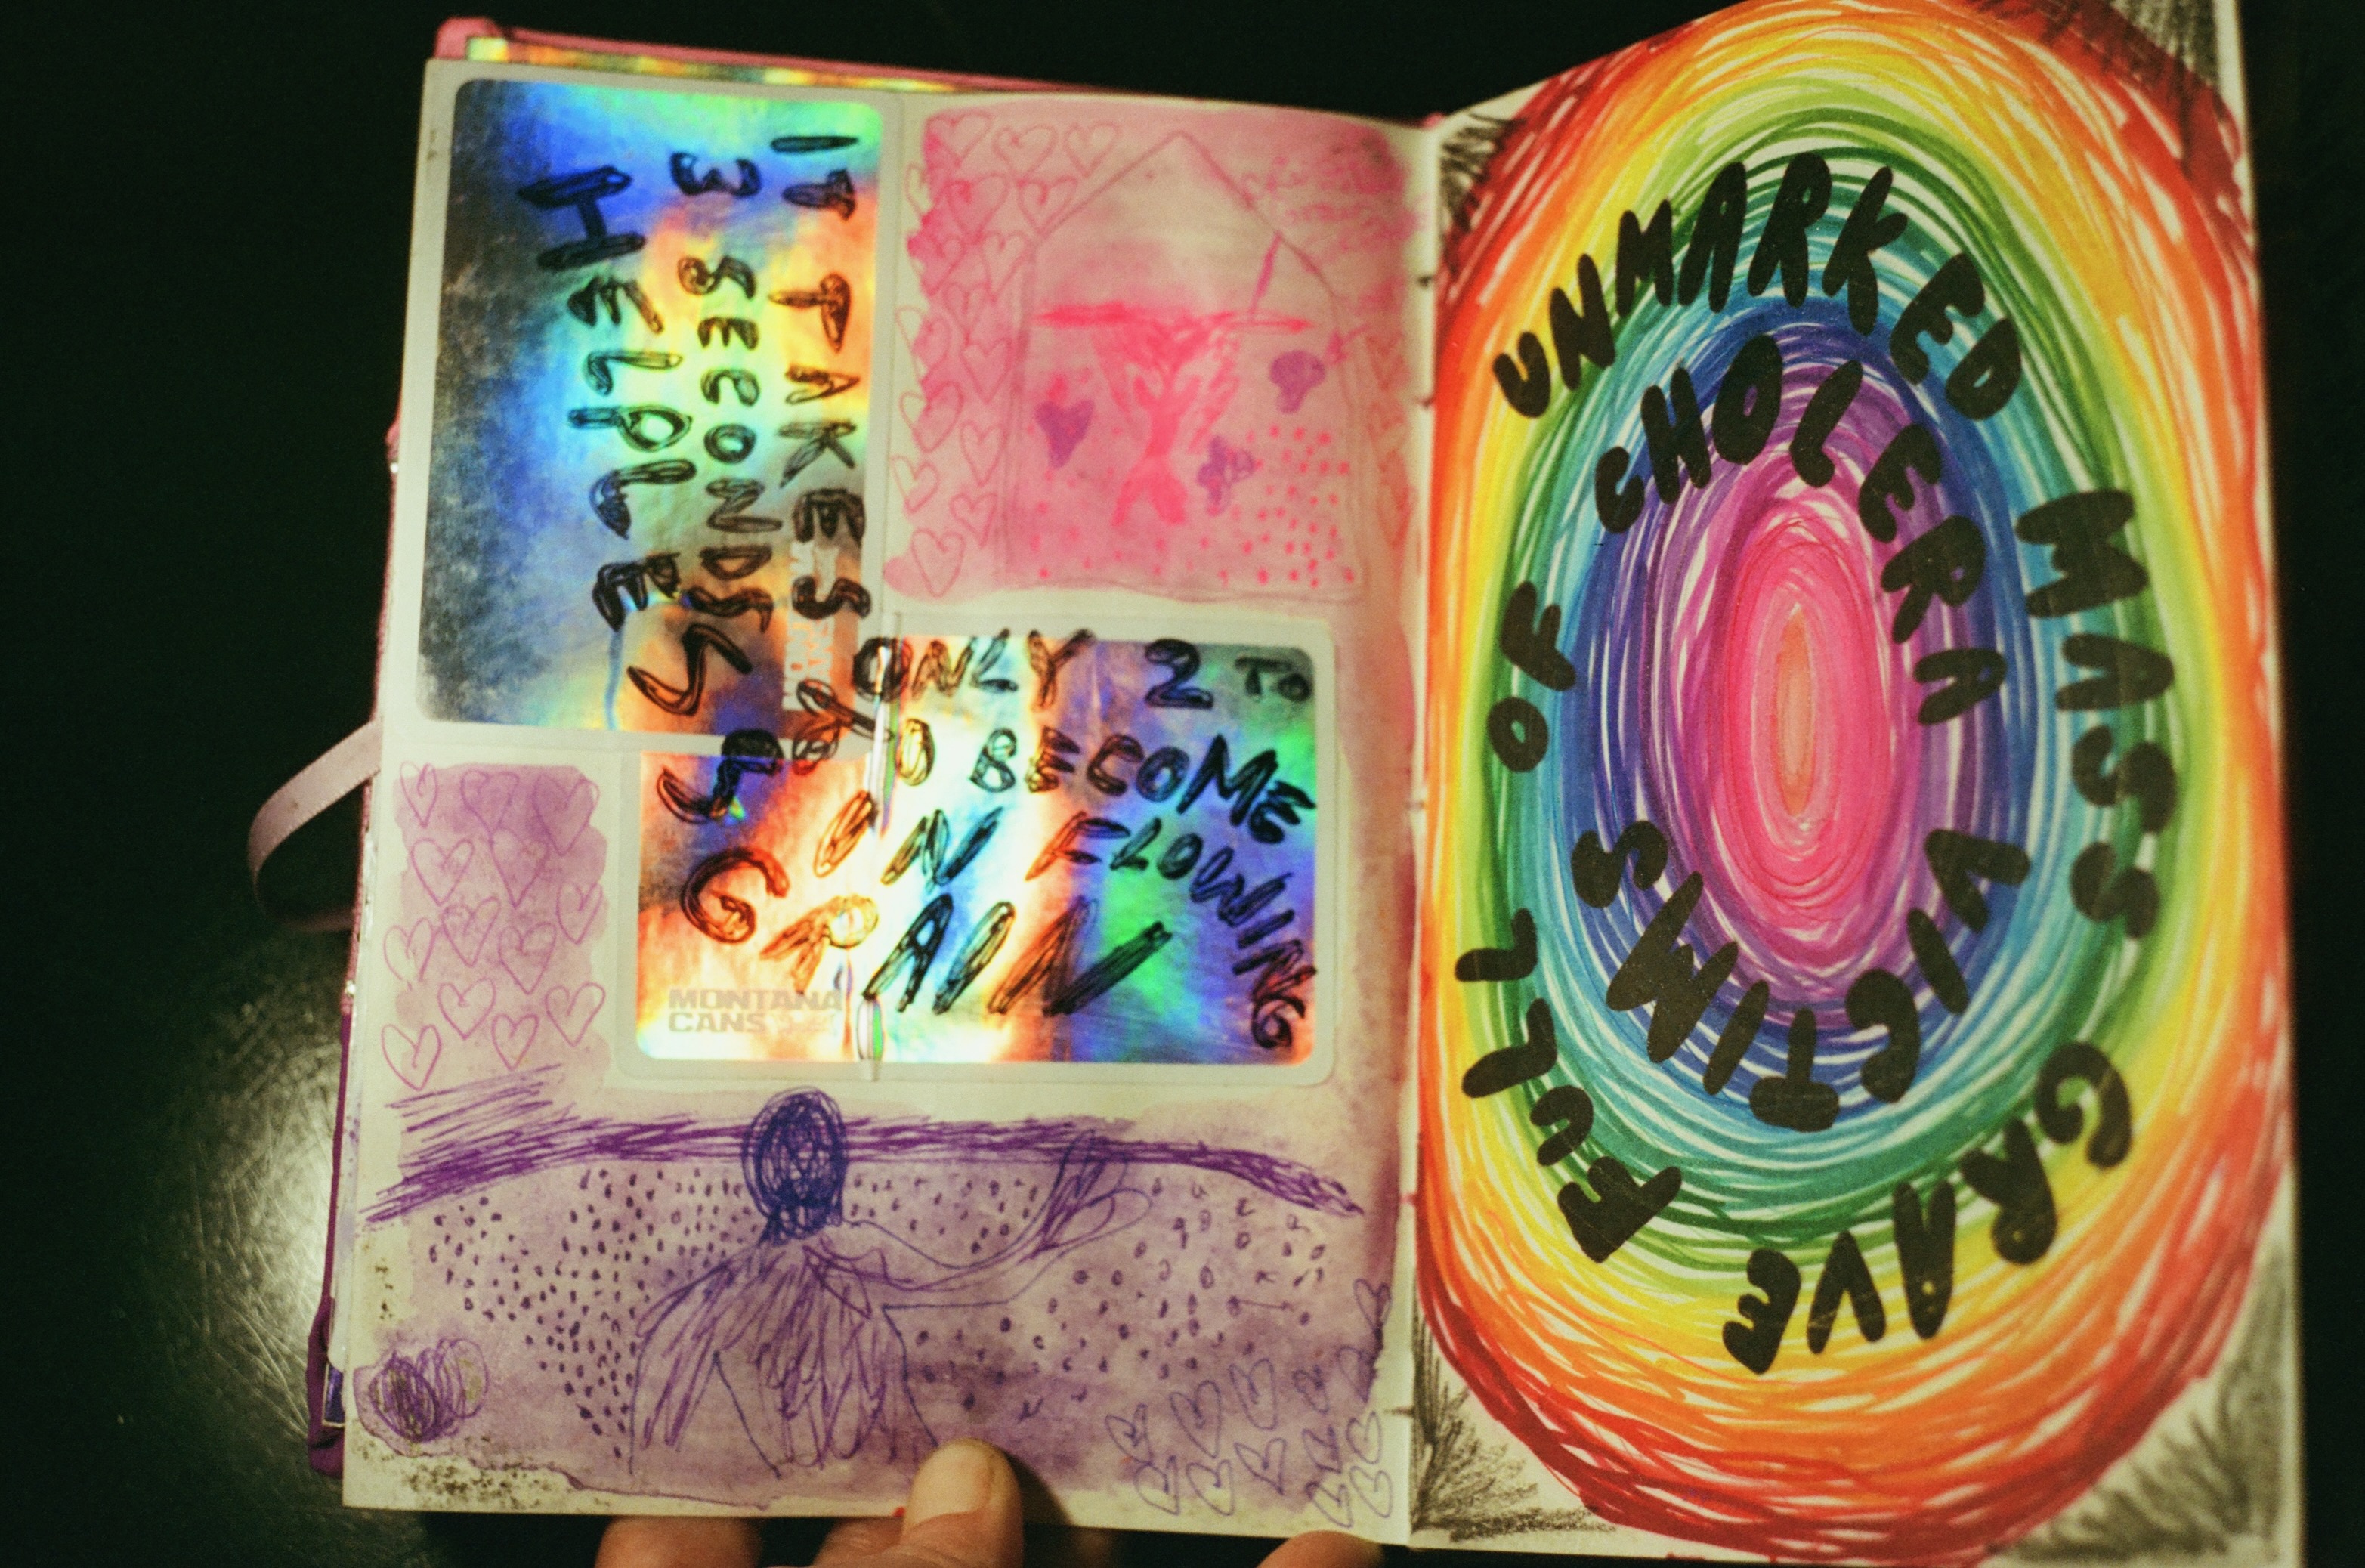 IT TAKES ONLY 2 TO
3 SECONDS TO BECOME
HELPLESS IN FLOWING
GRAIN
MONTANA
CANS
UNMARKED MASS GRAVE FULL OF
CHOLERA VICTIMS